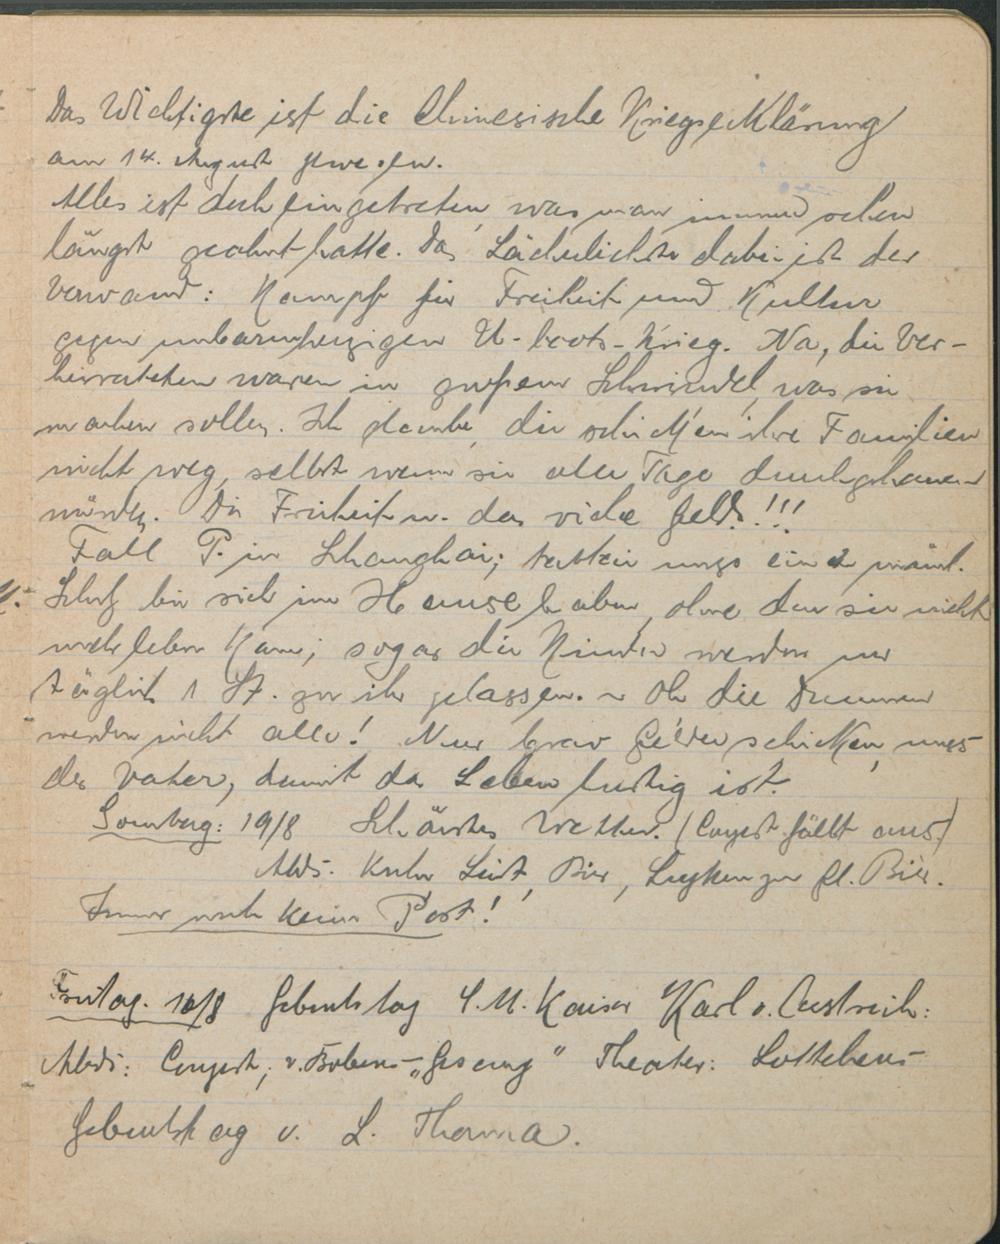 Das Wichtigste ist die Chinesische Kriegserklärung
am 14. August gewesen.
Alles ist doch eingetreten, was man immer schon
längst geahnt hatte. Das Lächerlichste dabei ist der
Vorwand: Kampf für Freiheit und Kultur
gegen unbarmherzigen U-boots-Krieg. Na, die Ver-
heirateten waren in großem Schwindel, was sie
machen sollen. Ich glaube, die schicken ihre Familien
nicht weg, selbst wenn sie alle Tage durchgehauen
würden. Die Freiheit u. das viele Geld!!!
Fall P. in Schanghai; ein
bei sich im Hause haben, ohne den sie nicht
mehr leben kann; sogar die Kinder werden nur
täglich 1 St. zu ihr gelassen. Oh die Dummen
werden nicht alle! Nur brav Gelder schicken,
der Vater, damit das Leben lustig ist.
Sonntag: 19/8 Wetter. (Conzert fällt aus)
Abds. Bier, gl. Bier.
Immer noch keine Post!
Freitag. Geburtstag S.M. Kaiser Karl v. Oestreich:
Abds: Conzert; v. Bobers-„Gesang" Theater: Lottchens
Geburtstag v. L. Thoma.